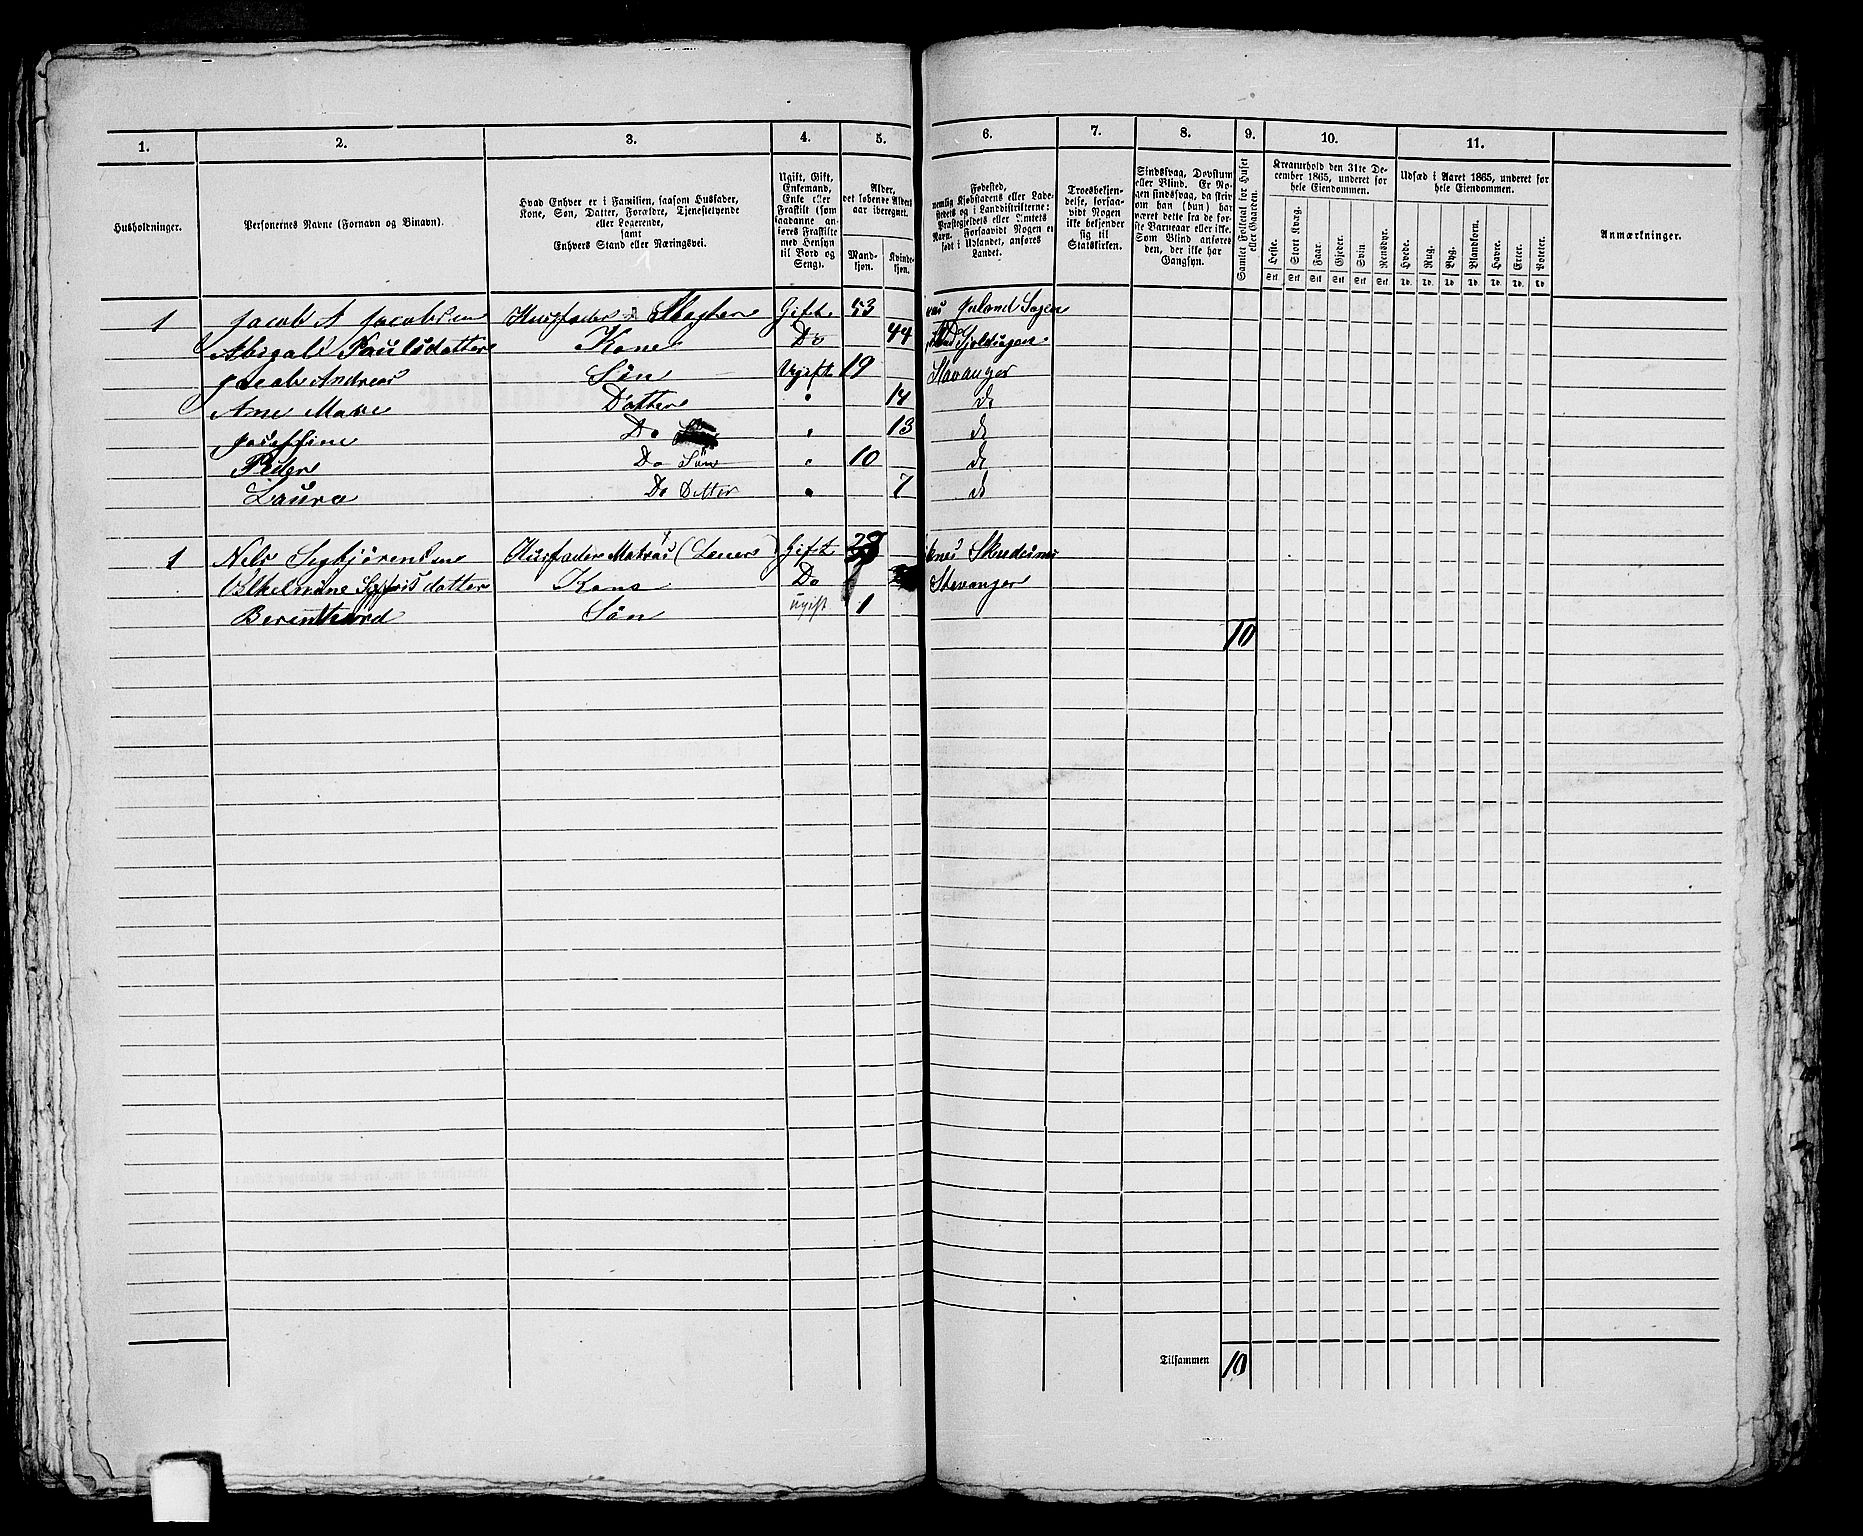 1. 2. 3. 4. 5. 6. 7. 8. 9. 10. 11.
Husholdninger.
Personernes Navne (Fornavn og Binavn).
Hvad Enhver er i Familien, saasom Husfader,
Kone, Søn, Datter, Forældre, Tjenestetyende
eller Logerende,
samt
Enhvers Stand eller Næringsvei.
Ugift, Gift,
Enkemand,
Enke eller
Fraskilt (som
saadanne an-
føres Fraskilte
med Hensyn
til Bord og
Seng).
Alder,
det løbende Alders
aar iberegnet.
Mand-
kjøn.
Kvinde-
kjøn.
Fødested,
nemlig Kjøbstadens eller Lade-
stedets og i Landdistrikterne:
Præstegjeldets eller Amtets
Navn. Forsaavidt Nogen er
født i Udlandet, anføres
Landet.
Troesbekjen-
delse, forsaa-
vidt Nogen
ikke bekjender
sig til
Statskirken.
Sindssvag, Døvstum
eller Blind. Er No-
gen sindssvag, da skriv
om han (hun) har
været dette fra de før-
ste Barneaar eller ikke.
Som Blind anføres
den, der ikke har
Gangsyn.
Samlet Folketal for Huset
eller Gaarden.
Kreaturhold den 31te De-
cember 1865, underet for
hele Eiendommen.
Heste. Stort Kvæg. Faar. Gjeder. Svin Rensdyr.
Stk Stk Stk Stk Stk Stk
Udsæd i Aaret 1865, underet for
hele Eiendommen.
Hvede. Rug. Byg. Blandkorn. Havre. Erter. Poteter.
Td. Td. Td. Td. Td. Td. Td.
Anmærkninger.
1 Jacob A Jacobsen Husfader Gift 53
Abigael Paulsdatter Kone Do 44
Jacob Andreas Søn Ugift 19 Stavanger
Ane Mare Datter " 14 do
Josefine Do " 13 do
Peder Do Søn " 10 do
Laura Do Datter " 7 do
1 Nels Husfader Matros Gift 28
datter Kone Do Stavanger
Bernthard Søn ugift 1
10
Tilsammen 10